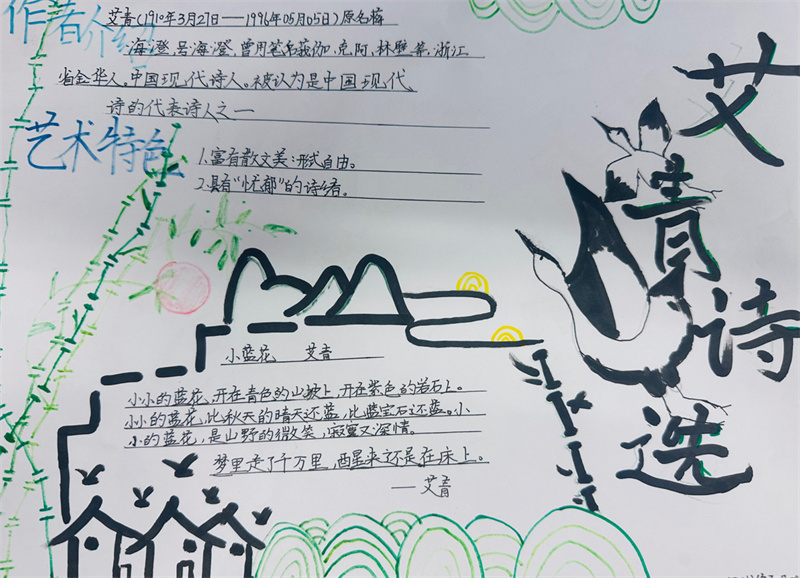 作者介绍
艾青(1910年3月27日——1996年05月05日)原名蒋
海澄,号海澄,曾用笔名莪伽、克阿、林壁等,浙江
省金华人。中国现代诗人。被认为是中国现代
诗的代表诗人之一
艺术特色
1.富有散文美:形式自由。
2.具有“忧郁”的诗绪。
艾青诗选
小蓝花 艾青
小小的蓝花,开在青色的山坡上,开在紫色的岩石上。
小小的蓝花,比秋天的晴天还蓝,比蓝宝石还蓝。小
小的蓝花,是山野的微笑,寂寞又深情。
梦里走了千万里,酉星来还是在床上。
——艾青